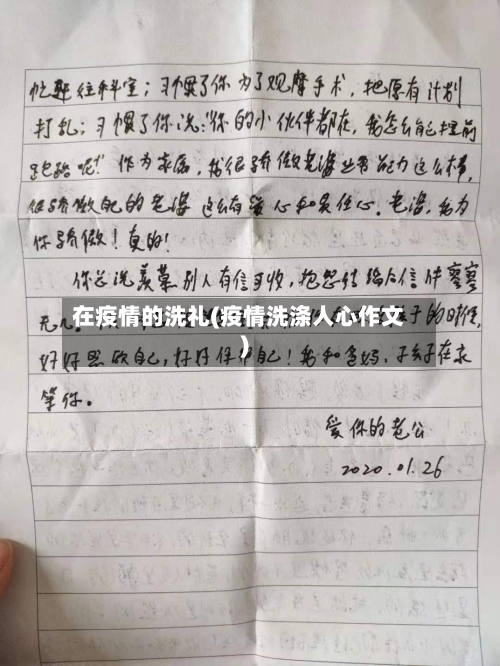 忙赶往科室；习惯了你为了观摩手术，把原有计划
打乱；习惯了你说：“你的小伙伴都在，我怎么自己提前
跑路呢！”作为家属，我很骄傲老婆业务能力这么棒，
很骄傲自己的老婆这么有爱心和责任心。老婆，我为
你骄傲！真的！
你总说羡慕别人有信可收，抱怨结婚后信件寥寥
无几。
在疫情的洗礼(疫情洗涤人心作文
)
子的时候，
好好照顾自己，好好保护自己！我和爸妈、孩子在家
等你。
爱你的老公
2020.01.26